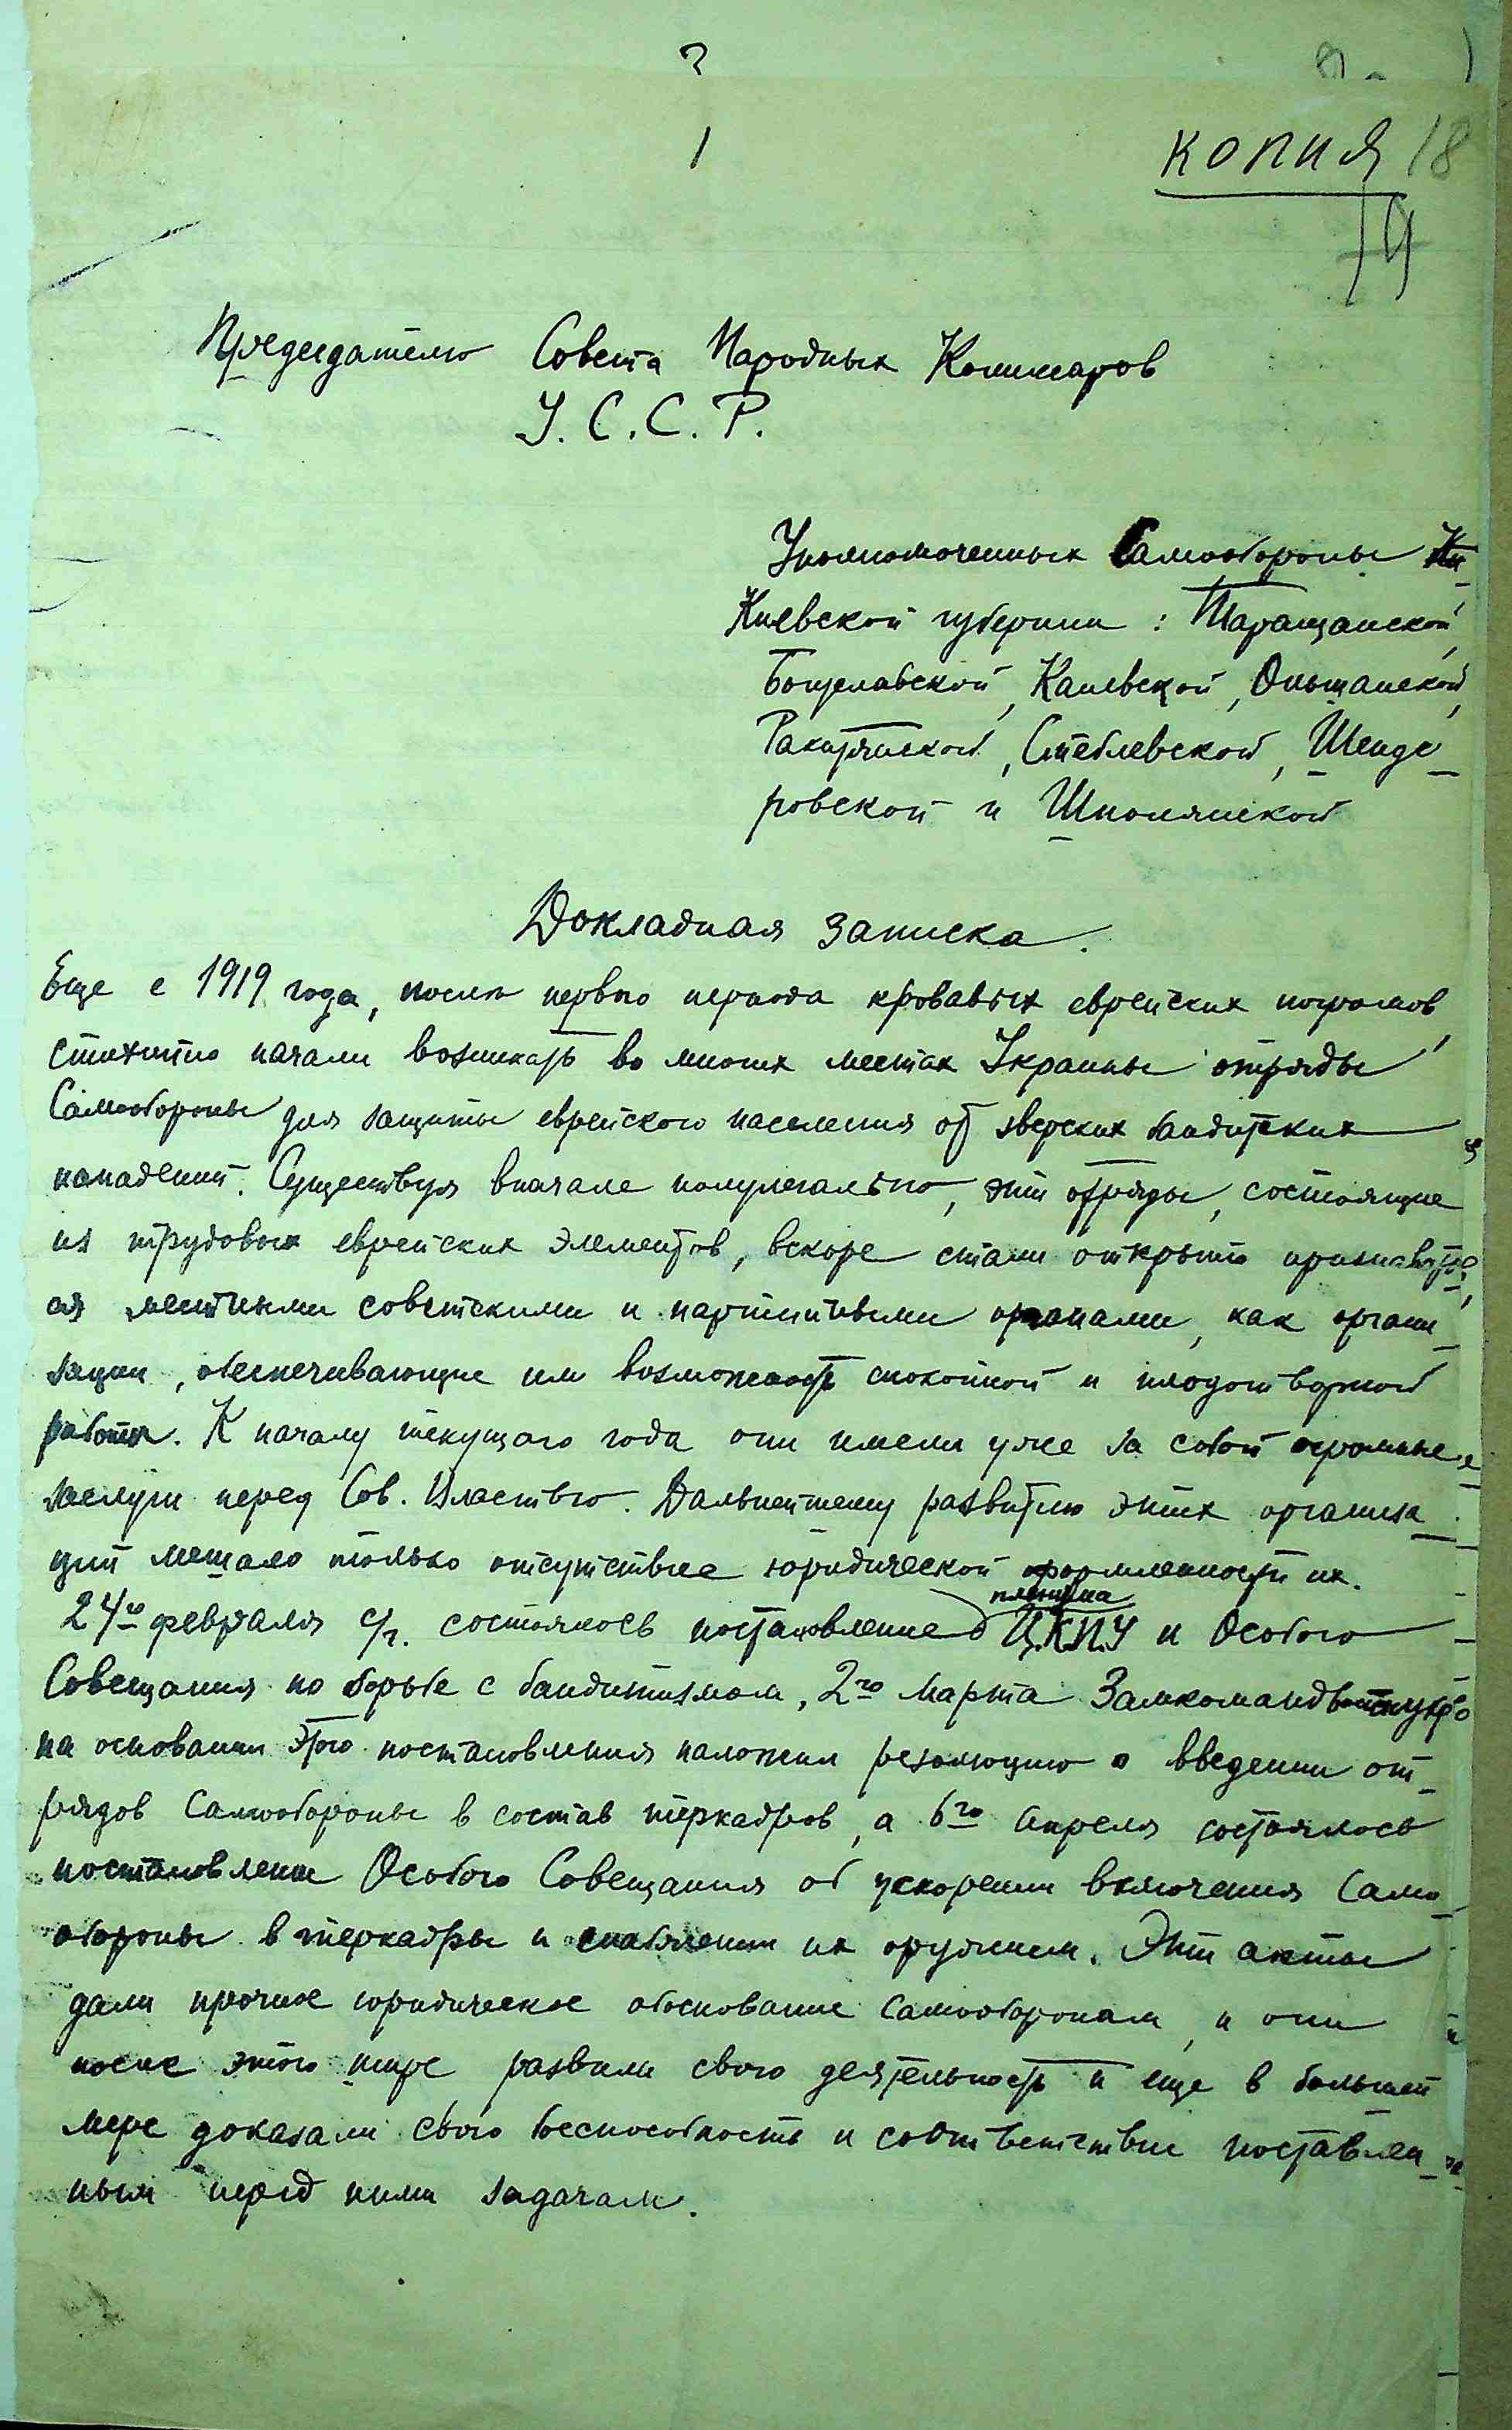 1
КОПИЯ 18
Председателю Совета Народных Комиссаров
У.С.С.Р.
Уполномоченных Самообороны
Киевской губернии: Таращанской,
Богуславской, Каневской, Ольшанской,
Ракитянской, Стеблевской, Шенде-
ровской и Шполянской
Докладная записка.
Еще с 1919 года, после первого периода кровавых еврейских погромов,
стихийно начали возникать во многих местах Украины отряды
Самообороны для защиты еврейского населения от зверских бандитских
нападений. Существуя вначале полулегально, эти отряды, состоящие
из трудовых еврейских элементов, вскоре стали открыто признавать-
ся местными советскими и партийными органами, как органи-
зации, обеспечивающие им возможность спокойной и плодотворной
работы. К началу текущего года они имели уже за собой огромные
заслуги перед Сов. Властью. Дальнейшему развитию этих организа-
ций мешало только отсутствие юридической оформленности их.
24го февраля с/г. состоялось постановление пленума Ц.К.П.У и Особого
Совещания по борьбе с бандитизмом, 2го марта Замкомандвойскукр
на основании этого постановления наложил резолюцию о введении от-
рядов Самообороны в состав теркадров, а 6го апреля состоялось
постановление Особого Совещания об ускорении включения Само-
обороны в теркадры и снабжении их оружием. Эти акты
дали прочное юридическое обоснование Самооборонам, и они
после этого шире развили свою деятельность и еще в большей
мере доказали свою боеспособность и соответствие поставлен-
ным перед ними задачам.